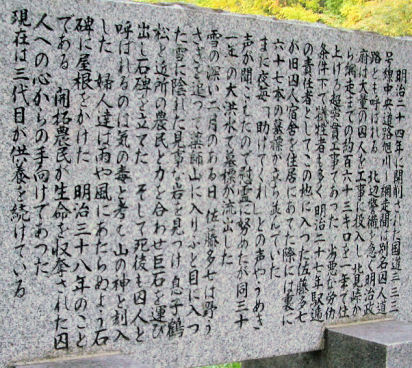 明治二十四年に開削された国道三三三
号線中央道路旭川―網走間は別名囚人道
路とも呼ばれる 北辺警備を急ぐ明治政
府は大量の囚人を工事に投入し北見峠か
ら網走までの約百六十三キロを一年で仕
上げる超突貫工事であった 劣悪な労働
条件下に犠牲者も多く明治二十七年駅逓
の責任者としてこの地に入った佐藤多七
が旧囚人宿舎を住居にあてた際には裏に
六十七本の墓標が立ち並んでいた
また夜毎「助けてくれ」との声やうめき
声が聞こえたので慰霊に努めたが同三十
一年の大洪水で墓標が流出した
雪の深い二月のある日 佐藤多七は野う
さぎを追って薬師山に入りふと目に入っ
た雪に隠れた見事な岩を見つけ息子鶴
松と近所の農民と力を合わせ巨石を運び
出し石碑を立てた そして死後も囚人と
呼ばれるのは気の毒と考え山の神と刻入
した 婦人達は雨や風にあたらぬよう石
碑に屋根をかけた 明治三十八年のこと
である 開拓農民が生命を収奪された囚
人への心からの手向けであった
現在は三代目が供養を続けている